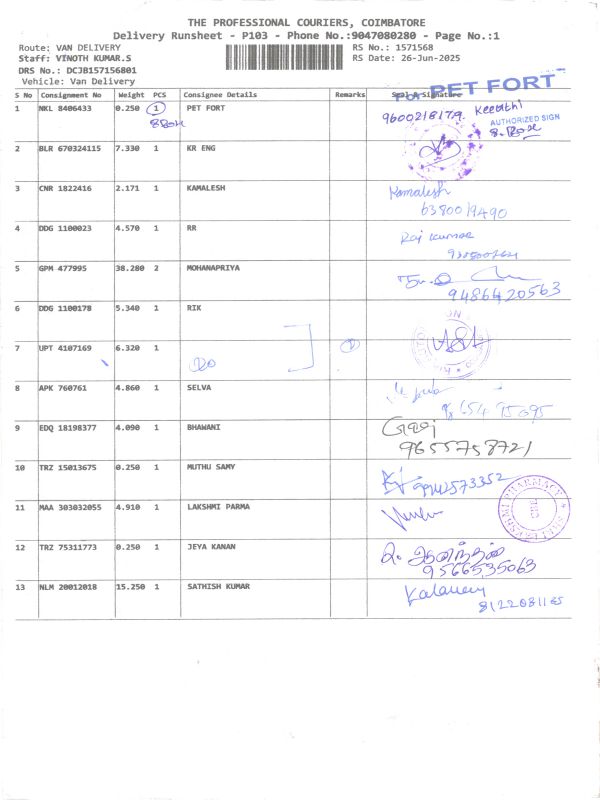 THE PROFESSIONAL COURIERS, COIMBATORE
Delivery Runsheet - P103 - Phone No.:9047080280 - Page No.:1
Route: VAN DELIVERY RS No.: 1571568
Staff: VINOTH KUMAR.S RS Date: 26-Jun-2025
DRS No.: DCJB157156801
Vehicle: Van Delivery
For PET FORT
S No Consignment No Weight PCS Consignee Details Remarks Seal & Signature
1 NKL 8406433 0.250 1 PET FORT
8 Box
9600218179 Keerthi
AUTHORIZED SIGN
8. Box
2 BLR 670324115 7.330 1 KR ENG
3 CNR 1822416 2.171 1 KAMALESH Kamalesh
6380019490
4 DDG 1100023 4.570 1 RR Raj kumar
5 GPM 477995 38.280 2 MOHANAPRIYA
9486420563
6 DDG 1100178 5.340 1 RIK
7 UPT 4107169 6.320 1
8 APK 760761 4.860 1 SELVA
9 EDQ 18198377 4.090 1 BHAWANI
9655758721
10 TRZ 15013675 0.250 1 MUTHU SAMY 9942573352
11 MAA 303032055 4.910 1 LAKSHMI PARMA
12 TRZ 75311773 0.250 1 JEYA KANAN
9566535063
13 NLM 20012018 15.250 1 SATHISH KUMAR
8122081165